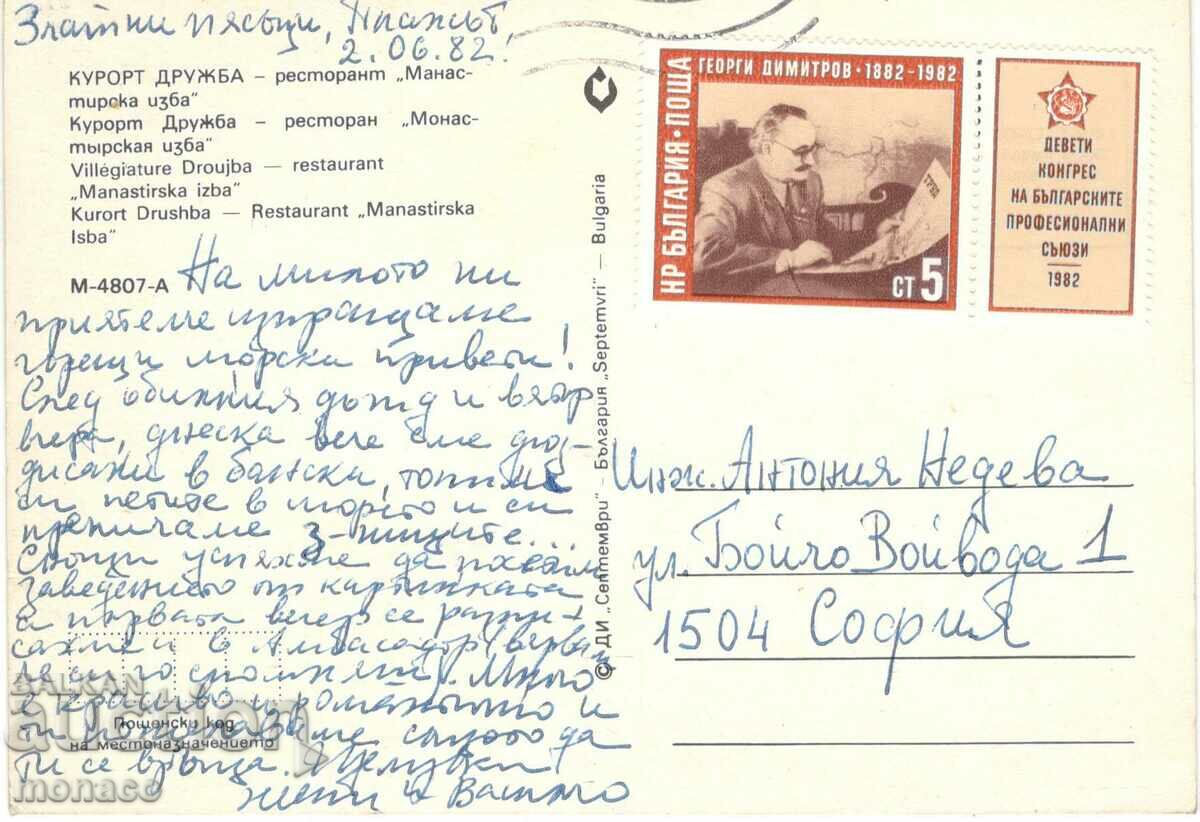 Златни пясъци, Плажът,
2.06.82.
КУРОРТ ДРУЖБА – ресторант „Манас-
тирска изба"
Курорт Дружба – ресторан „Монас-
тырская изба"
Villégiature Droujba – restaurant
„Manastirska izba"
Kurort Drushba – Restaurant „Manastirska
Isba"
М-4807-А
На милото ни
приятелче изпращаме
горещи морски привети!
След обилния дъжд и вятър
вчера, днеска вече сме
в бански, топиме
си петите в морето и си
препичаме з-ниците...
Снощи успяхме да
заведението от картичката
а първата вечер се
сахме и в Амбасадор
го спомняш). Много
е красиво и романтично и
ти пожелаваме същото да
ти се връща. Целувки
и Васько
Пощенски код
на местоназначението
© ДИ „Септември" – България „Septemvri" – Bulgaria
ГЕОРГИ ДИМИТРОВ · 1882-1982
НР БЪЛГАРИЯ · ПОЩА
СТ 5
ДЕВЕТИ
КОНГРЕС
НА БЪЛГАРСКИТЕ
ПРОФЕСИОНАЛНИ
СЪЮЗИ
1982
Инж. Антония Недева
ул. Бойчо Войвода 1
1504 София
BALKAN
auction
monaco